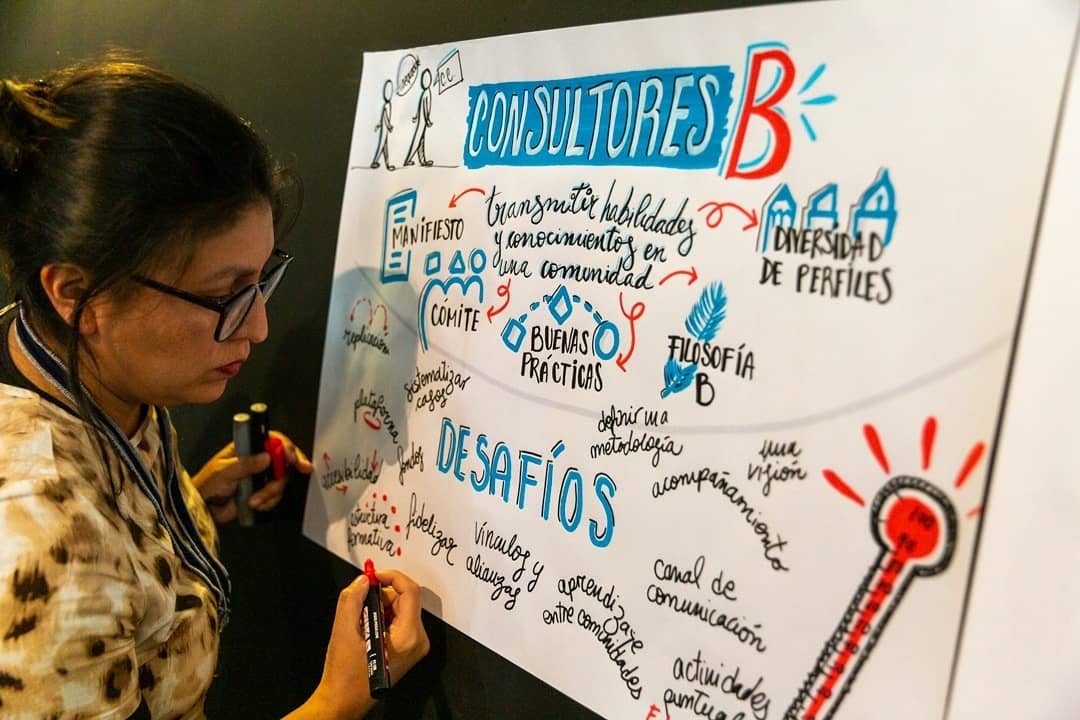 C.E.
CONSULTORES B
MANIFIESTO
transmitir habilidades
y conocimientos en
una comunidad
DIVERSIDAD
DE PERFILES
CÓMITE
BUENAS
PRÁCTICAS
FILOSOFÍA
B
replicación
sistematizar
casos
plataforma
fondos
DESAFÍOS
definir una
metodología
una
visión
acompañamiento
fidelizar
vínculos y
alianzas
aprendizaje
entre comunidades
canal de
comunicación
actividades